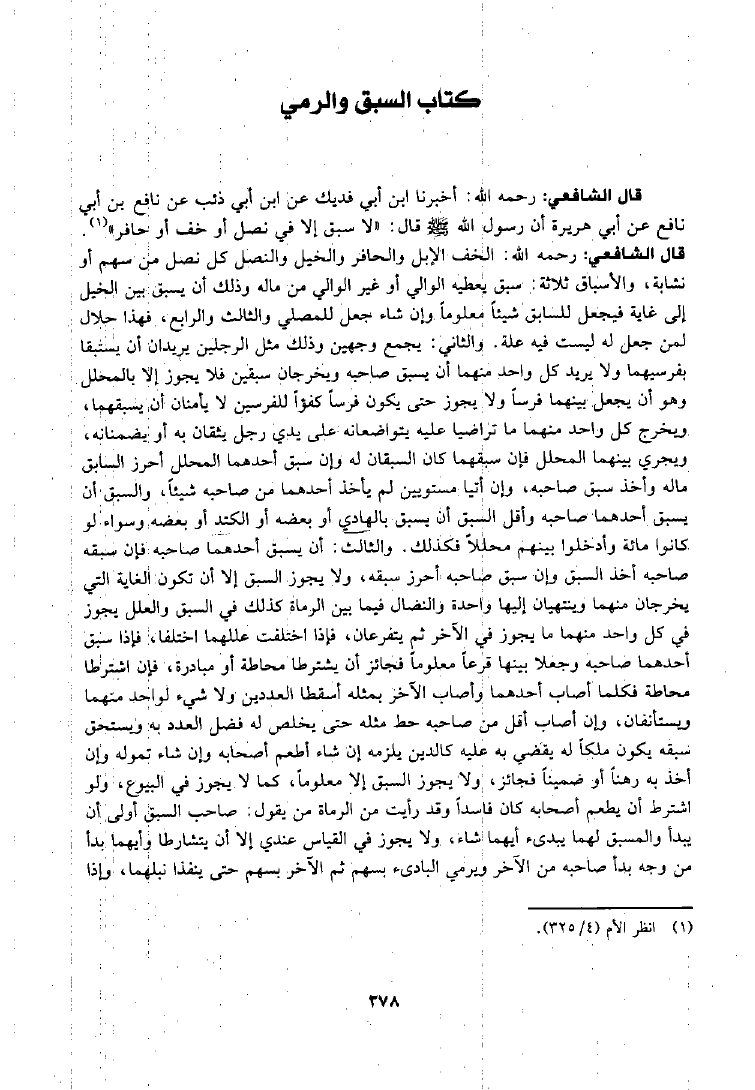 كتاب السبق والرمي
قال الشافعي: رحمه الله: أخبرنا ابن أبي فديك عن ابن أبي ذئب عن نافع بن أبي
نافع عن أبي هريرة أن رسول الله ﷺ قال: «لا سبق إلا في نصل أو خف أو حافر»(١).
قال الشافعي: رحمه الله: الخف الإبل والحافر والخيل والنصل كل نصل من سهم أو
نشابة، والأسباق ثلاثة: سبق يعطيه الوالي أو غير الوالي من ماله وذلك أن يسبق بين الخيل
إلى غاية فيجعل للسابق شيئاً معلوماً وإن شاء جعل للمصلي والثالث والرابع، فهذا حلال
لمن جعل له ليست فيه علة. والثاني: يجمع وجهين وذلك مثل الرجلين يريدان أن يستبقا
بفرسيهما ولا يريد كل واحد منهما أن يسبق صاحبه ويخرجان سبقين فلا يجوز إلا بالمحلل
وهو أن يجعل بينهما فرساً ولا يجوز حتى يكون فرساً كفؤاً للفرسين لا يأمنان أن يسبقهما،
ويخرج كل واحد منهما ما تراضيا عليه يتواضعانه على يدي رجل يثقان به أو يضمنانه،
ويجري بينهما المحلل فإن سبقهما كان السبقان له وإن سبق أحدهما المحلل أحرز السابق
ماله وأخذ سبق صاحبه، وإن أتيا مستويين لم يأخذ أحدهما من صاحبه شيئاً، والسبق أن
يسبق أحدهما صاحبه وأقل السبق أن يسبق بالهادي أو بعضه أو الكتد أو بعضه وسواء لو
كانوا مائة وأدخلوا بينهم محللاً فكذلك. والثالث: أن يسبق أحدهما صاحبه فإن سبقه
صاحبه أخذ السبق وإن سبق صاحبه أحرز سبقه، ولا يجوز السبق إلا أن تكون الغاية التي
يخرجان منهما وينتهيان إليها واحدة والنضال فيما بين الرماة كذلك في السبق والعلل يجوز
في كل واحد منهما ما يجوز في الآخر ثم يتفرعان، فإذا اختلفت عللهما اختلفا، فإذا سبق
أحدهما صاحبه وجعلا بينها قرعاً معلوماً فجائز أن يشترطا محاطة أو مبادرة، فإن اشترطا
محاطة فكلما أصاب أحدهما وأصاب الآخر بمثله أسقطا العددين ولا شيء لواحد منهما
ويستأنفان، وإن أصاب أقل من صاحبه حط مثله حتى يخلص له فضل العدد به ويستحق
سبقه يكون ملكاً له يقضي به عليه كالدين يلزمه إن شاء أطعم أصحابه وإن شاء تموله وإن
أخذ به رهناً أو ضميناً فجائز، ولا يجوز السبق إلا معلوماً، كما لا يجوز في البيوع، ولو
اشترط أن يطعم أصحابه كان فاسداً وقد رأيت من الرماة من يقول: صاحب السبق أولى أن
يبدأ والمسبق لهما يبدىء أيهما شاء، ولا يجوز في القياس عندي إلا أن يتشارطا وأيهما بدأ
من وجه بدأ صاحبه من الآخر ويرمي البادىء بسهم ثم الآخر بسهم حتى ينفذا نبلهما، وإذا
(١) انظر الأم (٣٢٥/٤).
٣٧٨